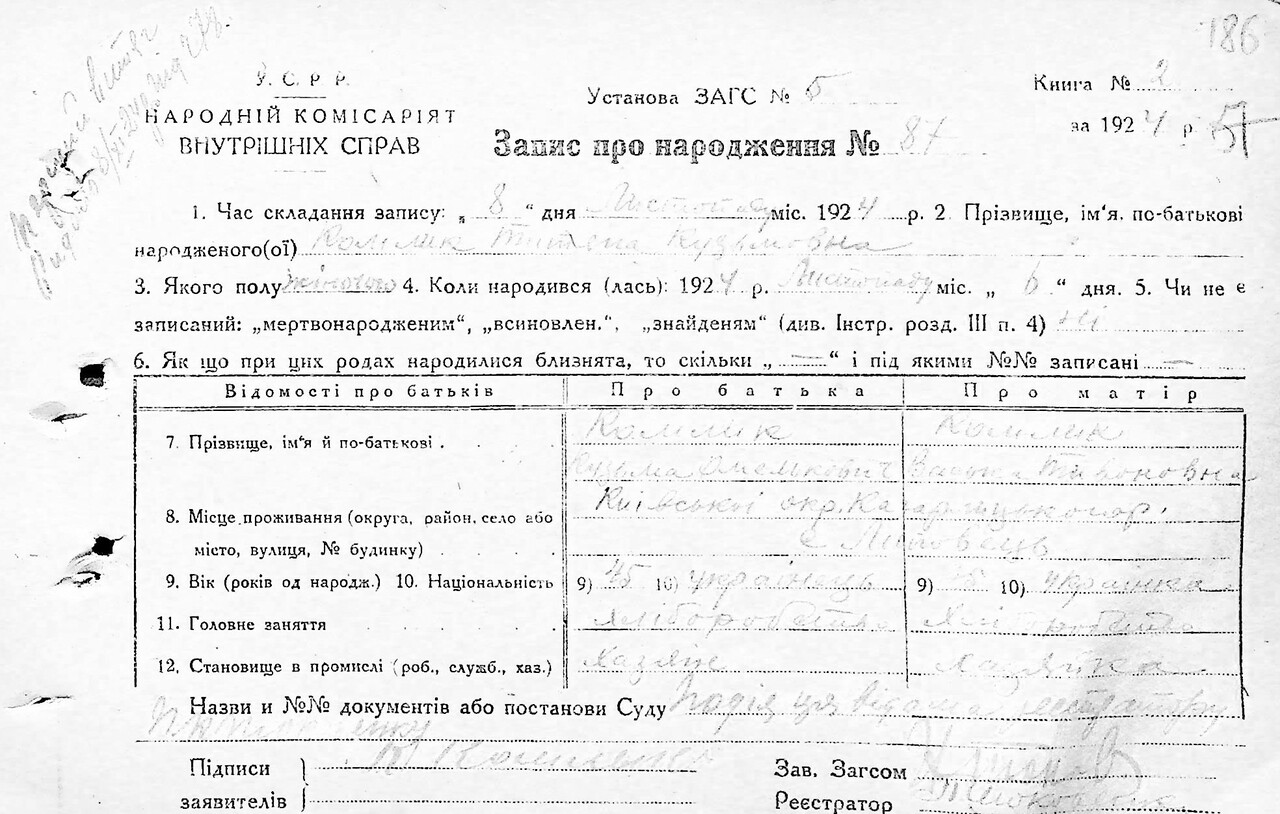 186
У. С. Р. Р.
НАРОДНІЙ КОМІСАРІЯТ
ВНУТРІШНІХ СПРАВ
Установа ЗАГС № 5
Книга № 2
за 1924 р. 57
Запис про народження № 87
1. Час складання запису: „ 8 “ дня Листопаду міс. 1924 р. 2. Прізвище, ім'я, по-батькові
народженого(ої) Комлик Титена Кузьмовна
3. Якого полу жіночого 4. Коли народився (лась): 1924 р. Листопаду міс. „ 6 “ дня. 5. Чи не є
записаний: „мертвонародженим“, „всиновлен.“, „знайденям“ (див. Інстр. розд. III п. 4) Ні
6. Як що при цих родах народилися близнята, то скільки „ — “ і під якими №№ записані —
Відомості про батьків Про батька Про матір
7. Прізвище, ім'я й по-батькові . Комлик Комлик
Кузьма Омелькович Васька Тихоновна
8. Місце проживання (округа, район, село або Київської окр. Кагарлицького р.
місто, вулиця, № будинку) с Липовець
9. Вік (років од народж.) 10. Національність 9) 45 10) українець 9) 45 10) українка
11. Головне заняття хлібороб хлібороб
12. Становище в промислі (роб., служб., хаз.) хазяїн хазяйка
Назви и №№ документів або постанови Суду Подія ця відома реєстратору
Підписи
заявителів
Зав. Загсом
Реєстратор